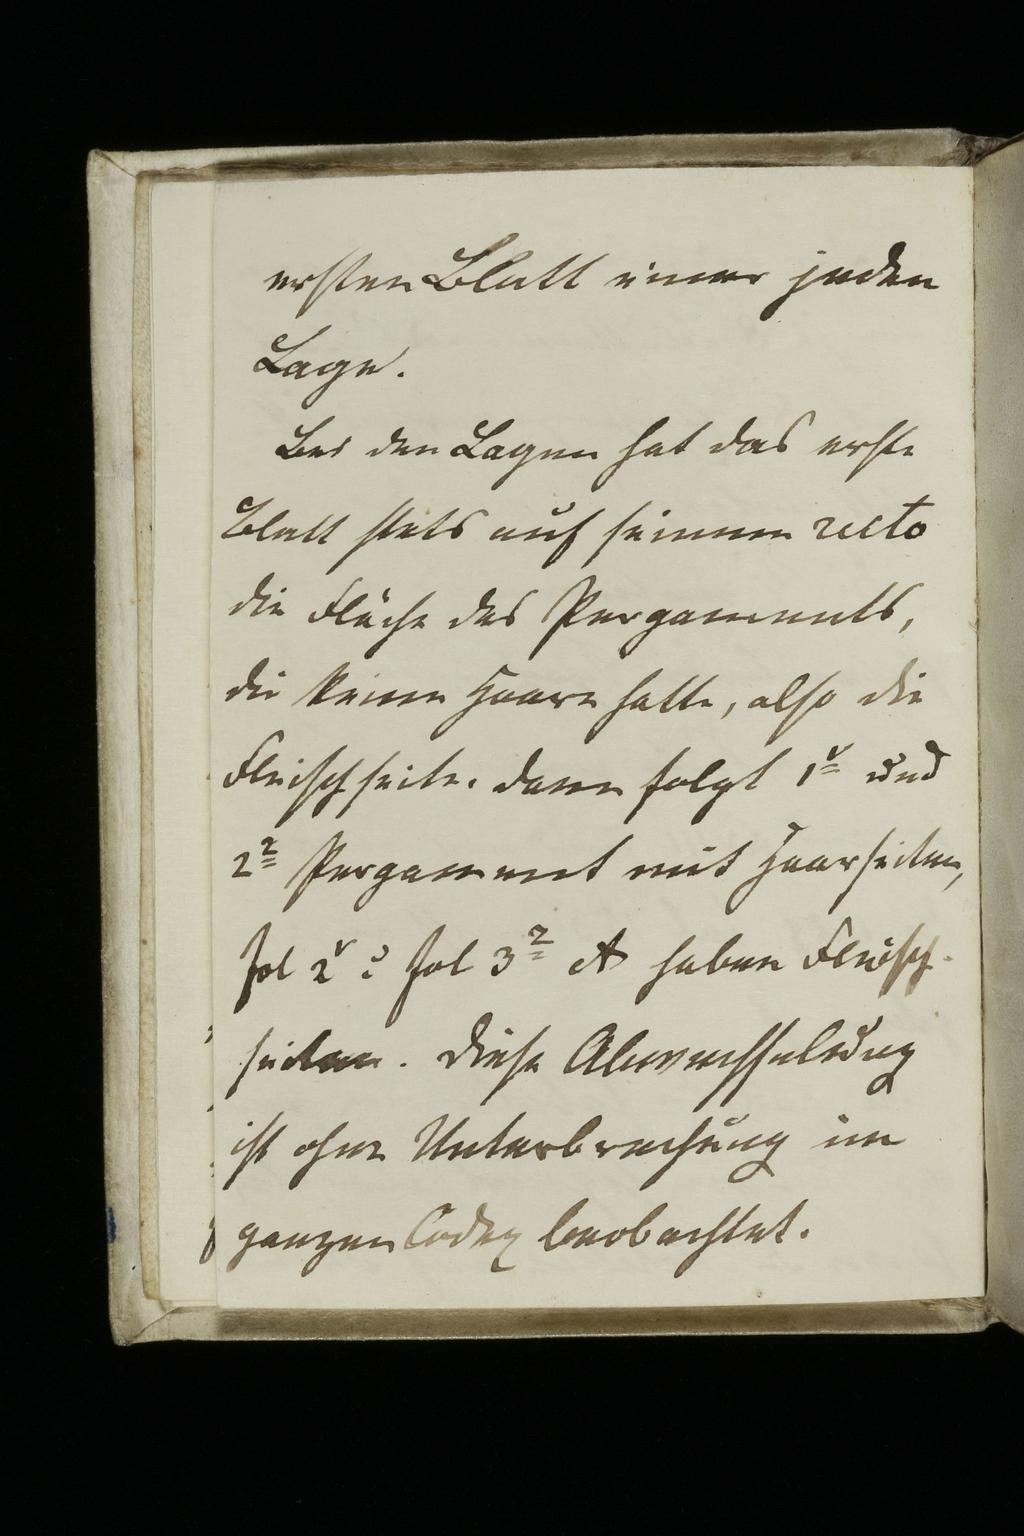 ersten Blatt einer jeden
Lage.
Bei den Lagen hat das erste
Blatt stets auf seinem recto
die Fläche des Pergaments,
die keine Haare hatte, also die
Fleischseite. Dann folgt 1v und
2r Pergament mit Haarseiten,
fol 2v & fol 3r haben Fleisch-
seiten. Diese Abwechselung
ist ohne Unterbrechung im
ganzen Codex beobachtet.